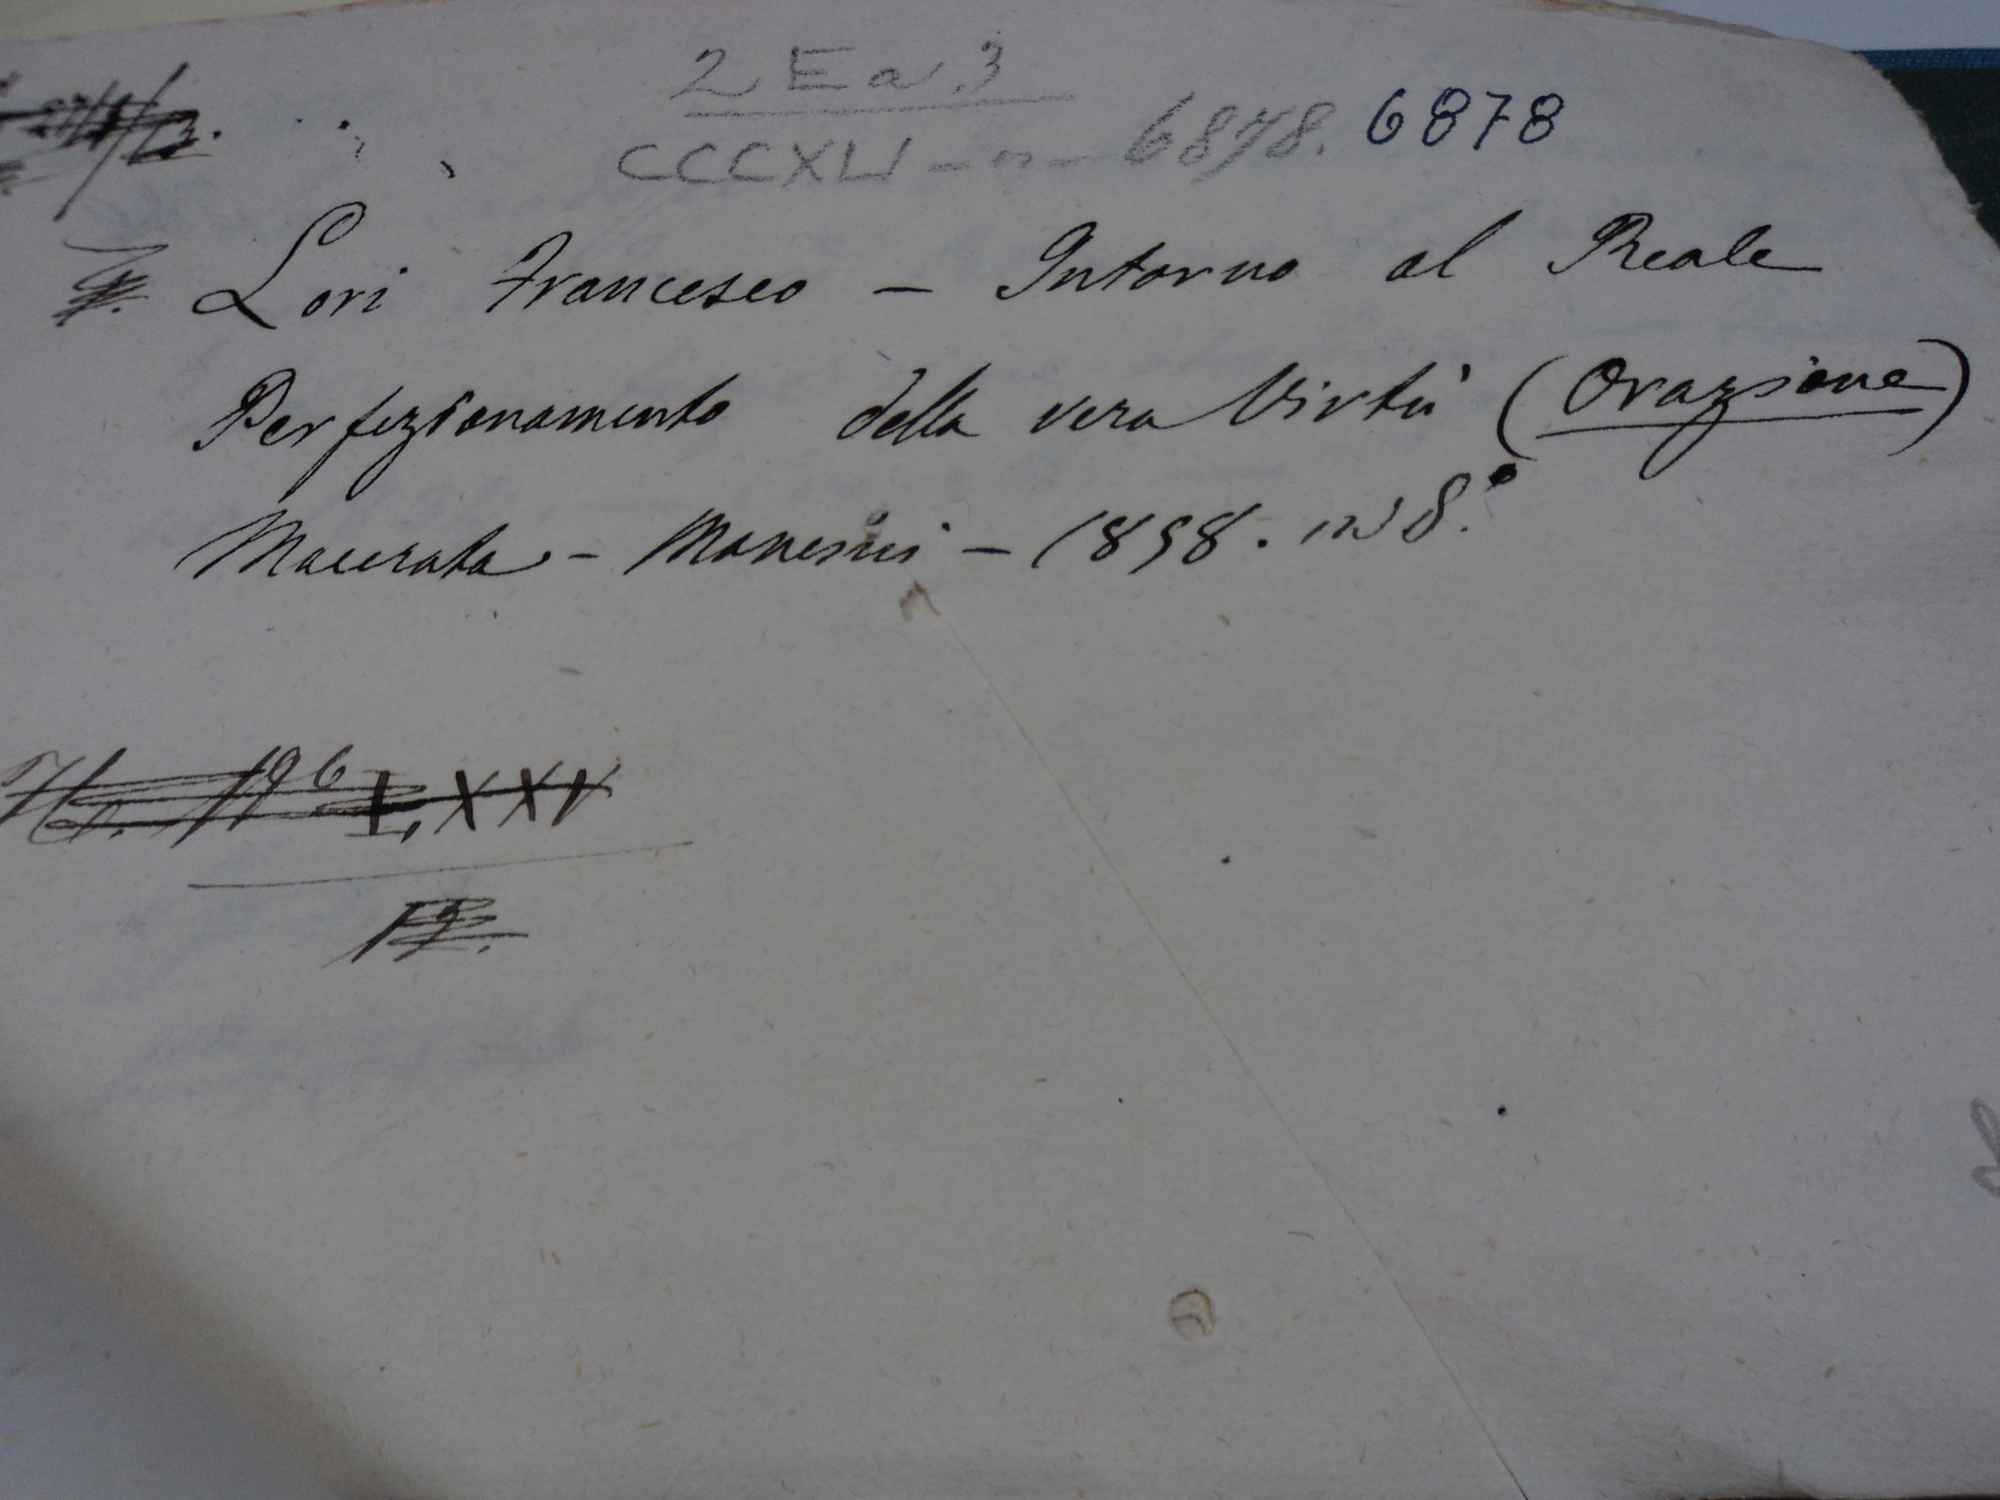 2 Ea 3
CCCXLI - n - 6878. 6878
Lori Francesco - Intorno al Reale
Perfezionamento della vera Virtù (Orazione)
Macerata - Mancini - 1898. in 8.°
196 LXXV